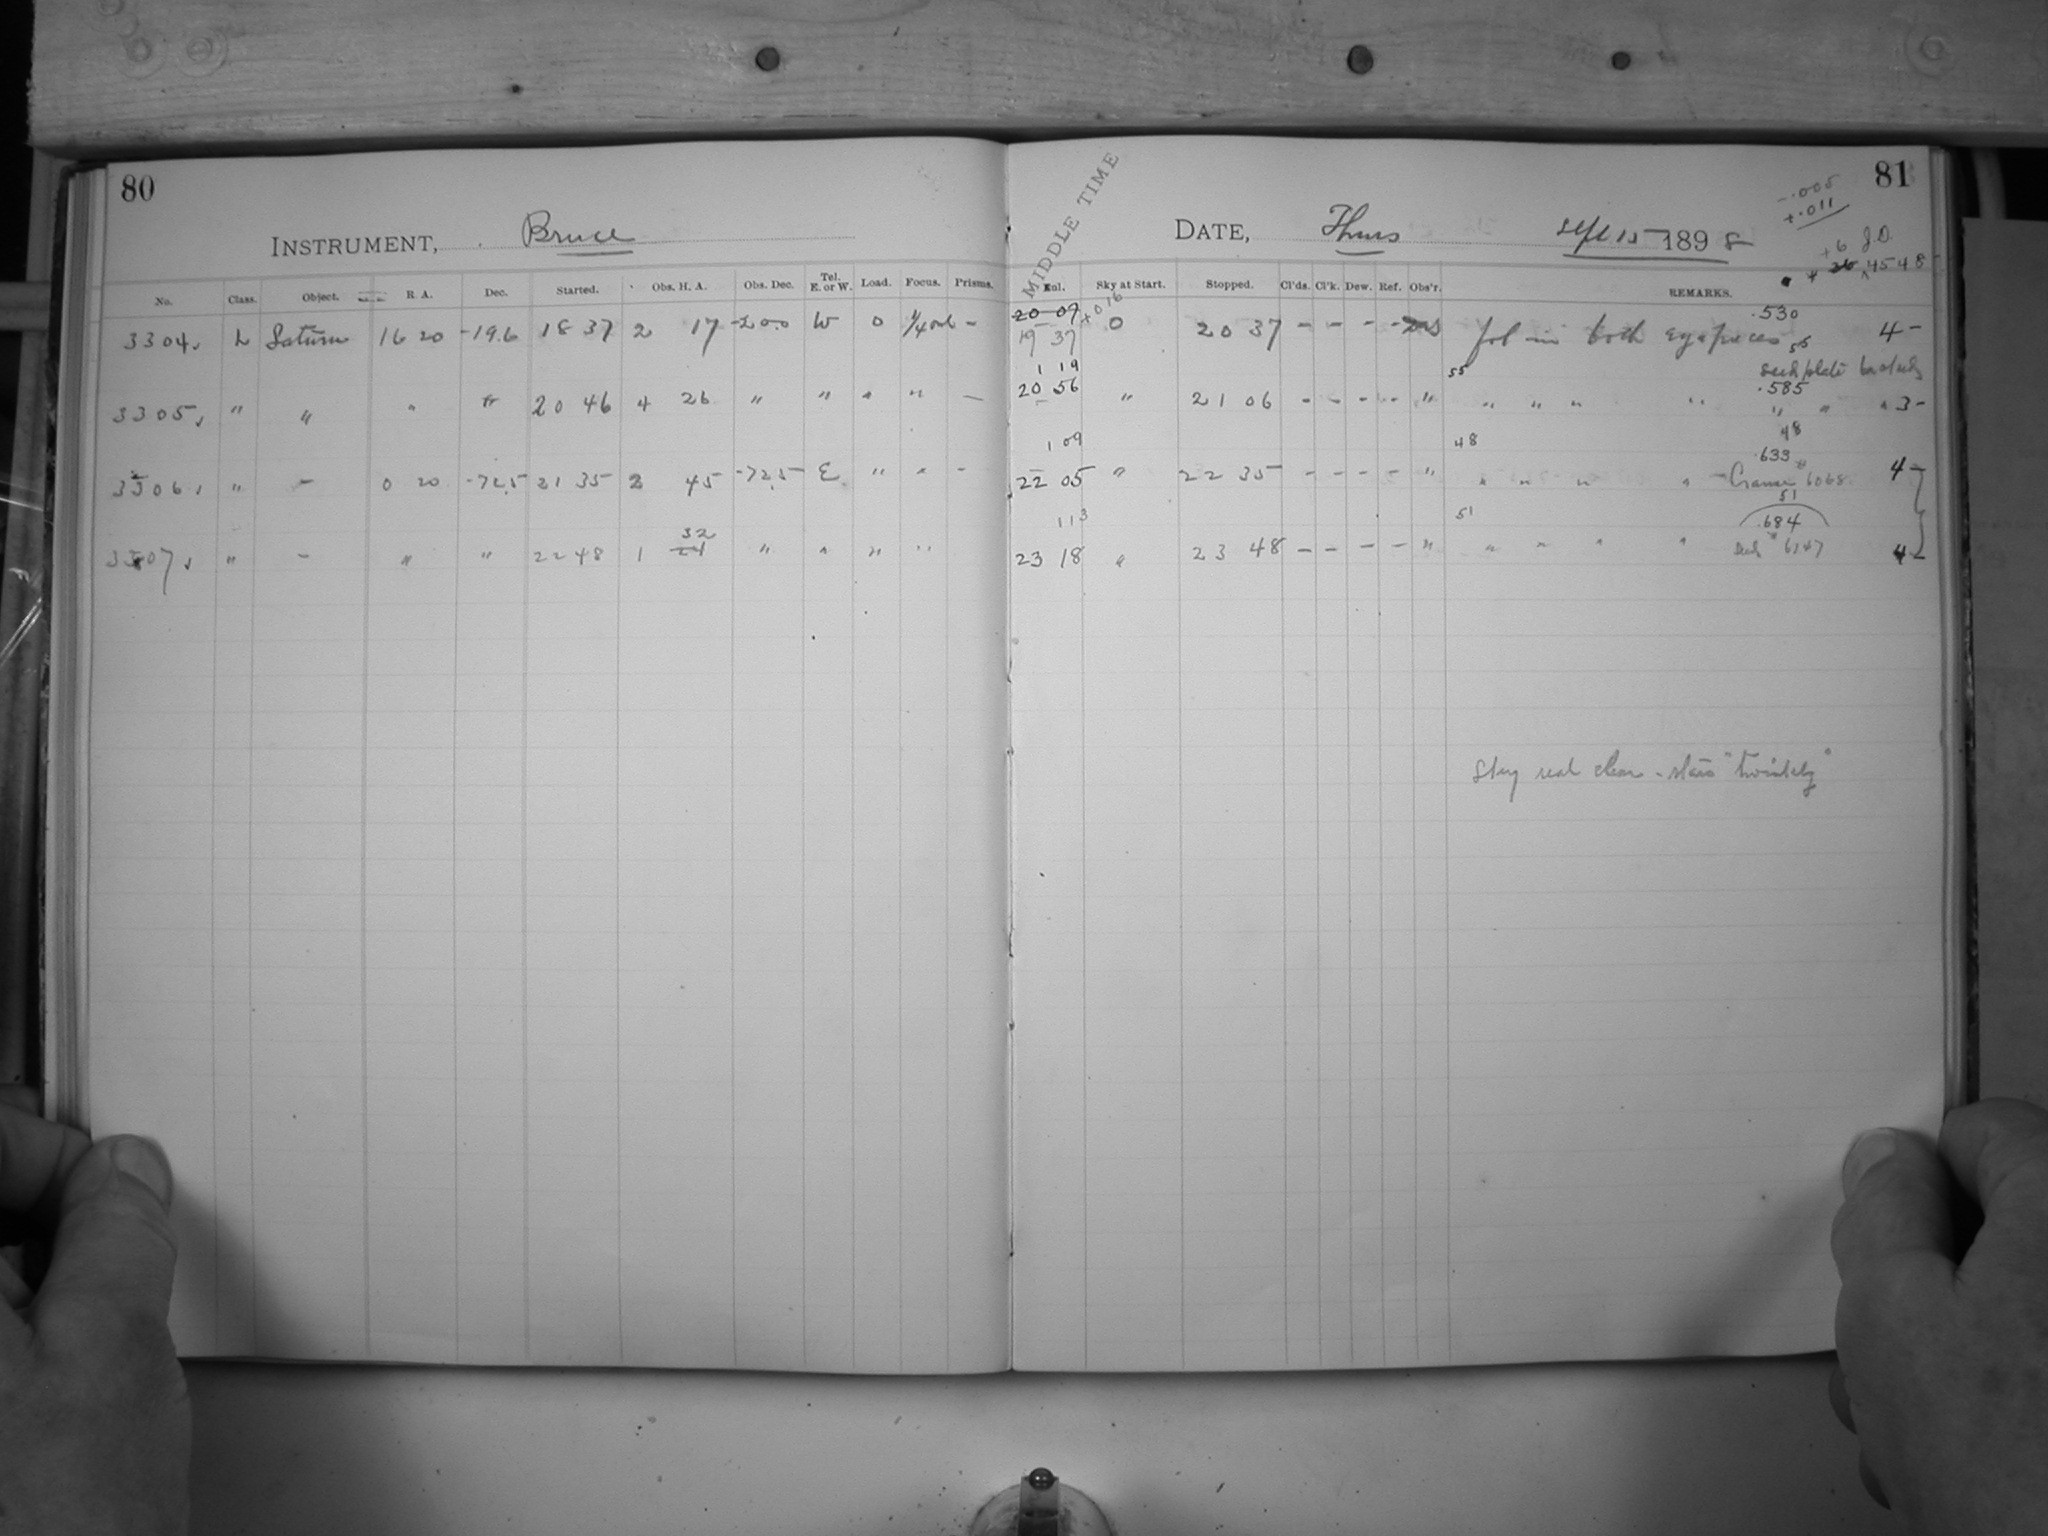 80
INSTRUMENT, Bruce
No. Class. Object. R. A. Dec. Started. Obs. H. A. Obs. Dec. Tel. E. or W. Load. Focus. Prisms.
3304 L Saturn 16 20 -19.6 18 37 2 17 -20.0 W 0 -
3305 " " " " 20 46 4 26 " " " " -
3306 " - 0 20 -72.5 21 35 2 45 -72.5 E " " -
32
3307 " - " " 22 48 1 24 " " " "
81
MIDDLE TIME
-.005
+.011
DATE, Thurs Sept 15 1898
+6 J.D.
4548
Sky at Start. Stopped. Cl'ds. Cl'k. Dew. Ref. Obs'r. REMARKS.
20 07 +016 .530
19 37 0 20 37 - - - - fol in both eyepieces 4-
1 19 55 55
20 56 " 21 06 - - - - " " " " " .585 " " " 3-
1 09 48 48
22 05 " 22 35 - - - - " " " " " .633 Cramer 6068 4-
1 13 51 51
23 18 " 23 48 - - - - " " " " " .684 6147 4-
Sky real clear - stars "twinkly"